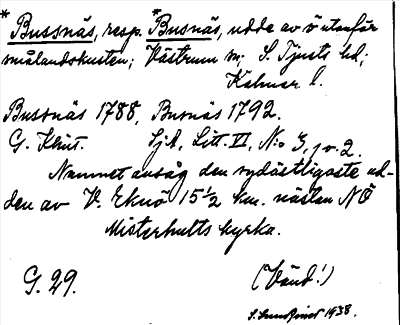 *Bussnäs, resp. *Busnäs, udde av ö utanför
smålandskusten; Västrum sn; S. Tjusts hd;
Kalmar l.
Bussnäs 1788, Busnäs 1792.
G. Klint. Sjk, Litt. VI, N:o 3, jv. 2.
Namnet ansåg den sydöstligaste ud-
den av V. Eknö 15½ km. nästan NÖ
Misterhults kyrka.
G. 29. (Vänd!)
S. Lundqvist 1938.